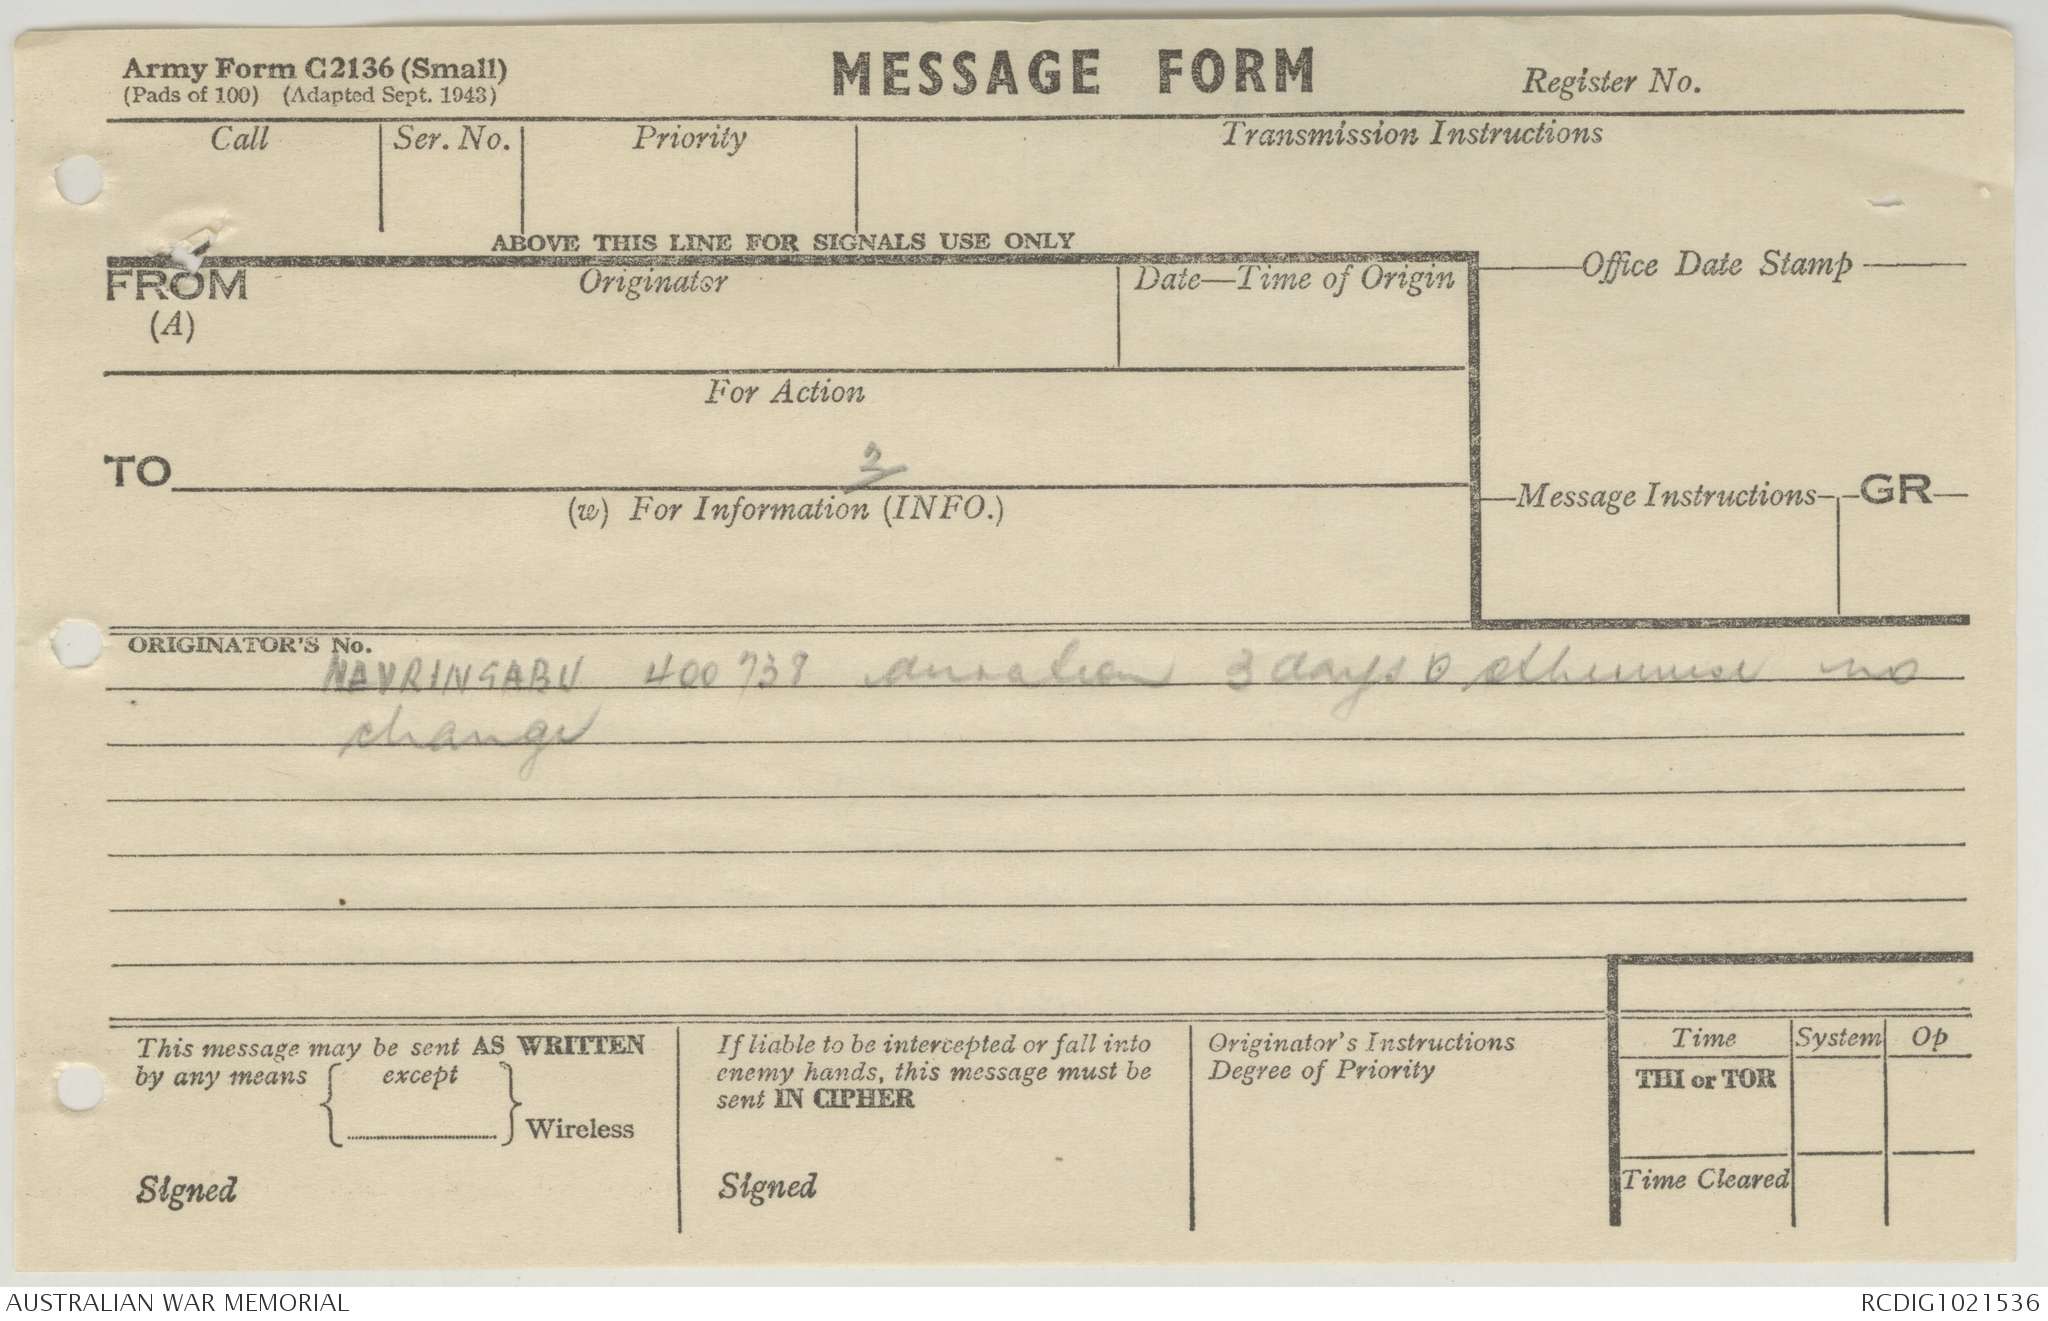 Army Form C2136 (Small)
(Pads of 100) (Adapted Sept. 1943)
MESSAGE FORM
Register No.
Call
Ser. No.
Priority
Transmission Instructions
ABOVE THIS LINE FOR SIGNALS USE ONLY
FROM
(A)
Originator
Date—Time of Origin
Office Date Stamp
For Action
TO
2
(w) For Information (INFO.)
Message Instructions
GR
ORIGINATOR'S No.
MAURINGABU 400738 duration 3 days O otherwise no
change
This message may be sent AS WRITTEN
by any means { except } Wireless
Signed
If liable to be intercepted or fall into
enemy hands, this message must be
sent IN CIPHER
Signed
Originator's Instructions
Degree of Priority
Time
System
Op
THI or TOR
Time Cleared
AUSTRALIAN WAR MEMORIAL
RCDIG1021536